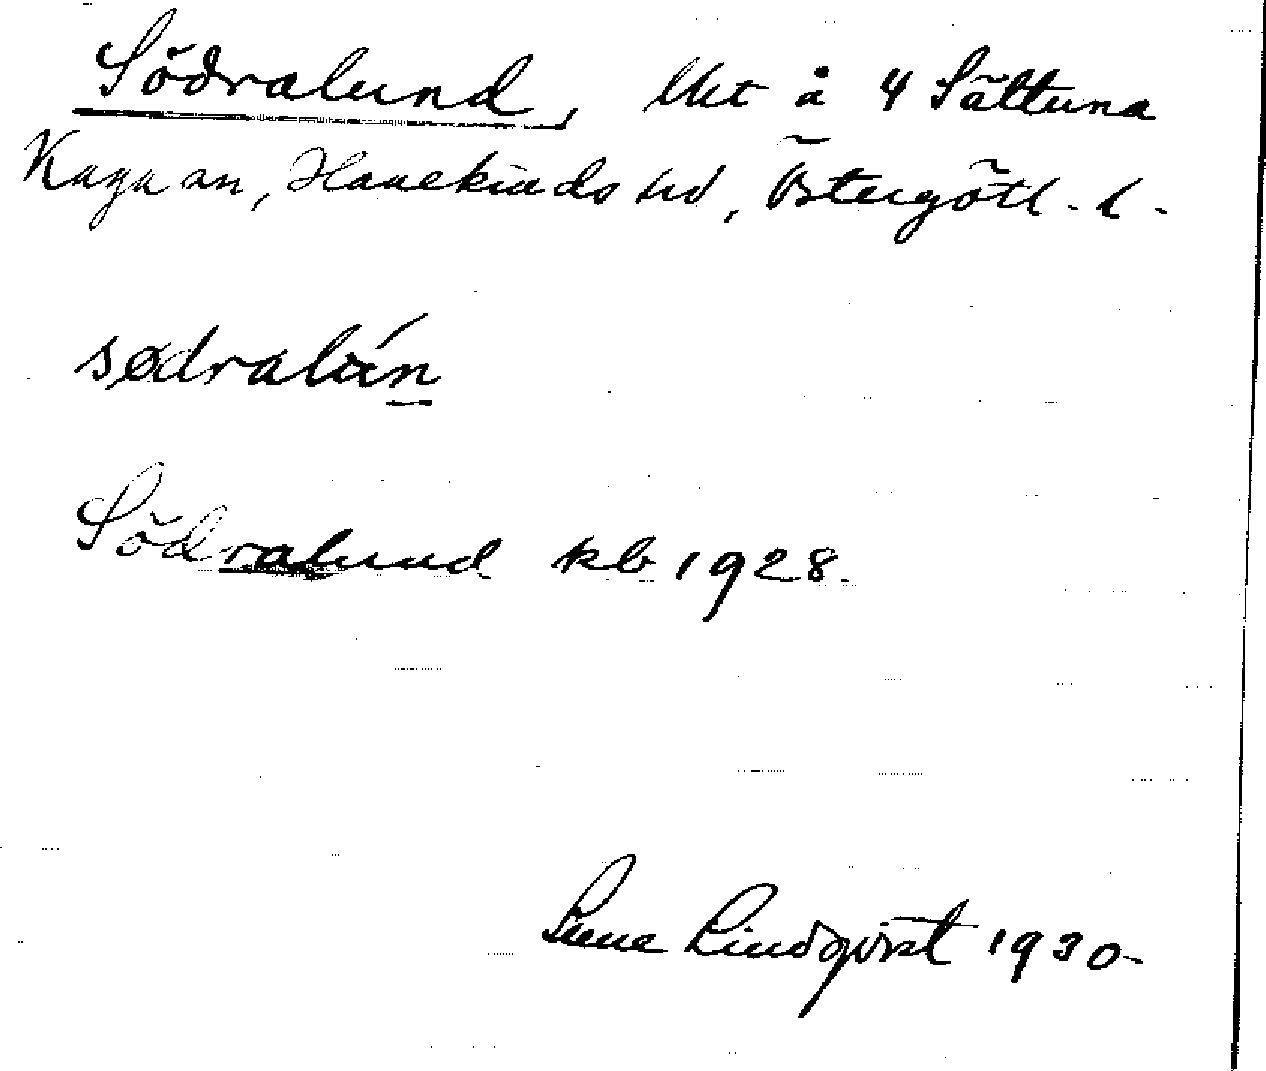 Södralund, lht å 4 Sättuna
Kaga sn, Hanekinds hd, Östergötl. l.
sødralún
Södralund kb 1928.
Lindqvist 1930